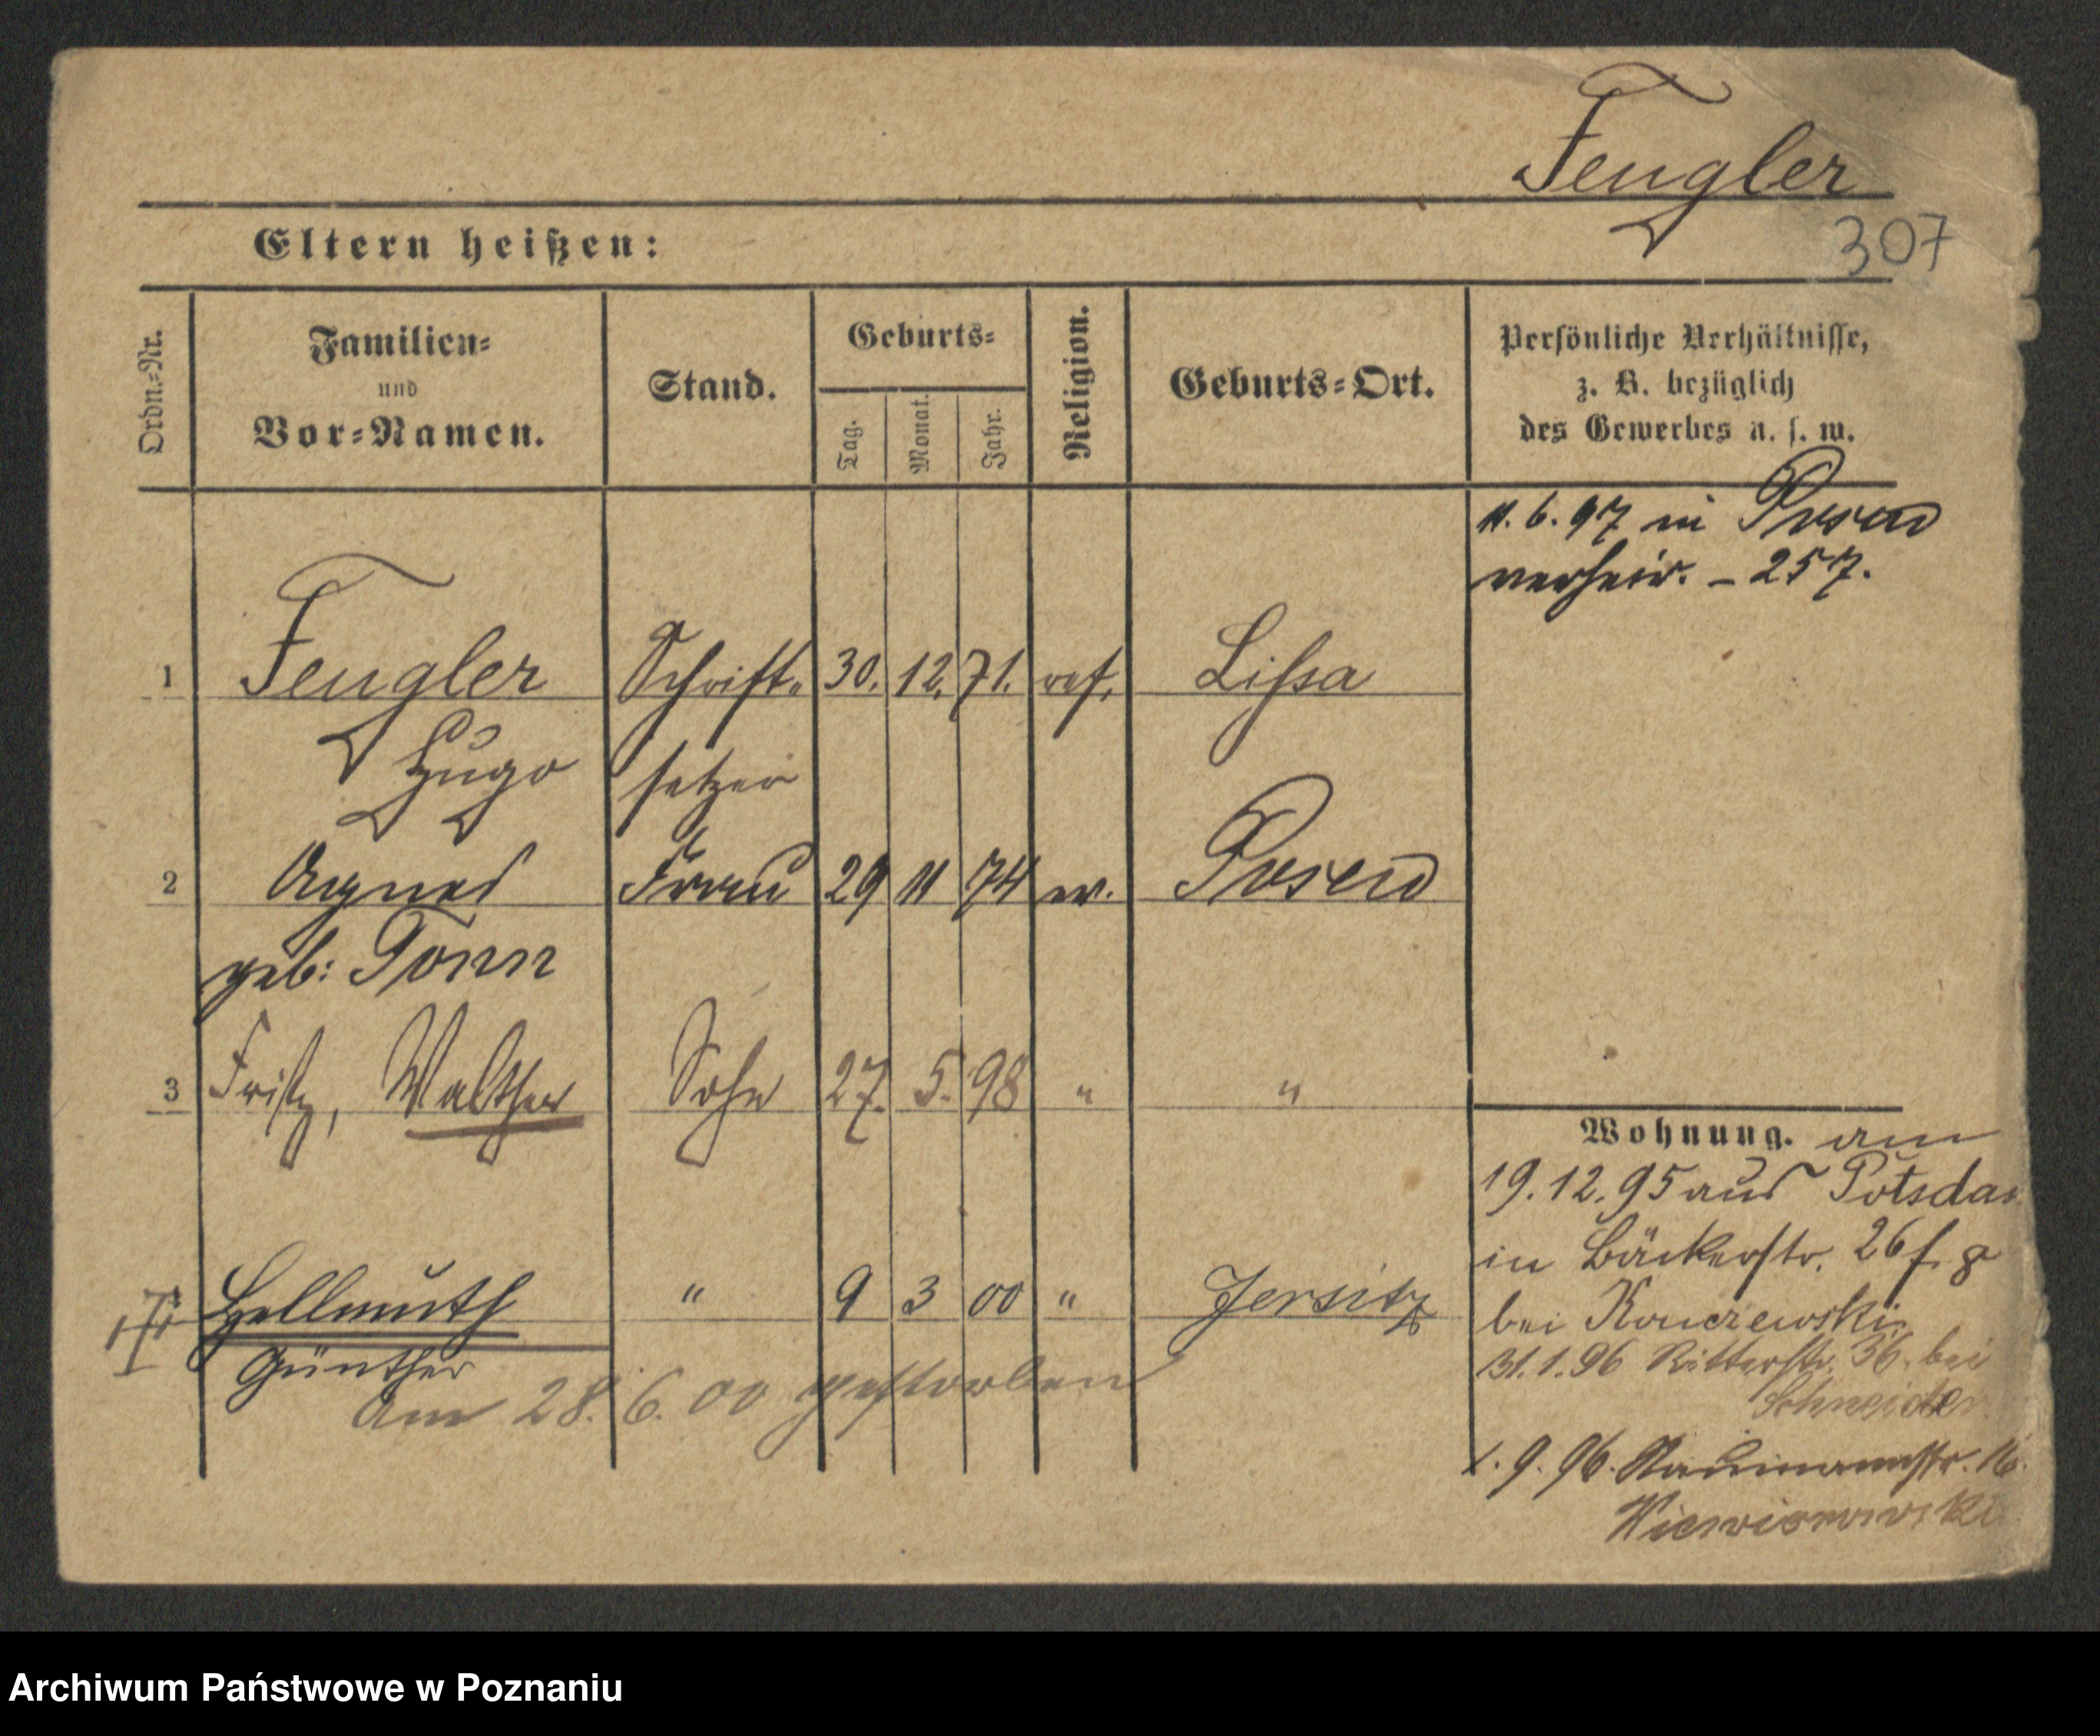 Feugler
307
Eltern heißen:
Ordn.=Nr.
Familien=
und
Vor=Namen.
Stand.
Geburts=
Tag.
Monat.
Jahr.
Religion.
Geburts=Ort.
Persönliche Verhältnisse,
z. B. bezüglich
des Gewerbes u. s. w.
11. 6. 97 in Posen
verheir. – 257.
1 Feugler Schrift= 30. 12. 71. ref. Lissa
Hugo setzer
2 Agnes Frau 29 11 74 ev. Posen
geb: Tonn
3 Fritz, Walther Sohn 27. 5. 98 " "
Wohnung. am
19. 12. 95 aus Potsdam
in Bäckerstr. 26
bei
Hellmuth " 9 3 00 " Jersitz
Günther
am 28. 6. 00 gestorben
31. 1. 96 Ritterstr. 36. bei
Schneider
1. 9. 96. Naumannstr. 16.
Archiwum Państwowe w Poznaniu